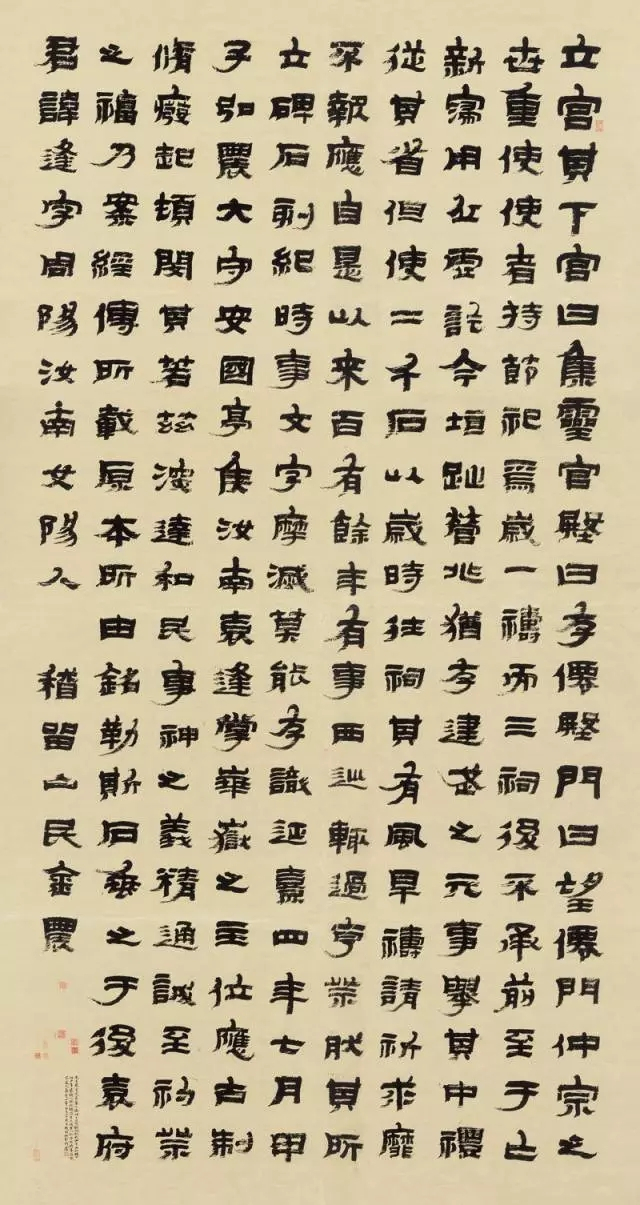 立宫其下宫曰集靈宫殿曰存僊殿門曰望僊門仲宗之
世重使使者持節祀焉歲一禱而三祠後不承前至于亡
新寖用丘虛訖今垣趾營兆猶存建武之元事舉其中禮
從其省但使二千石以歲時往祠其有風旱禱請祈求靡
不報應自是以來百有餘年有事西巡輒過亨祭然其所
立碑石刻紀時事文字摩滅莫能存識延熹四年七月甲
子弘農大守安國亭侯汝南袁逢掌華嶽之主位應古制
脩廢起頓閔其若茲深達和民事神之義精通誠至礿祭
之福乃案經傳所載原本所由銘勒斯石垂之于後袁府
君諱逢字周陽汝南女陽人 稽留山民金農